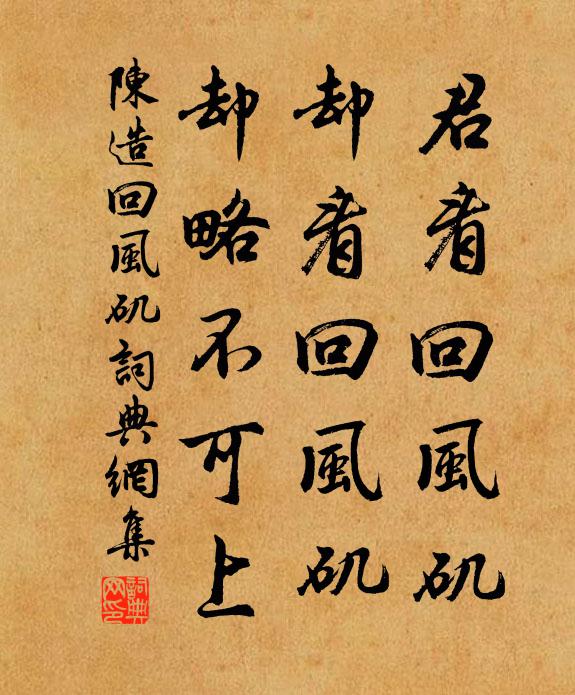 君看回風矶
却看回風矶
却略不可上
陳造回風矶詞典網集
詞典网印